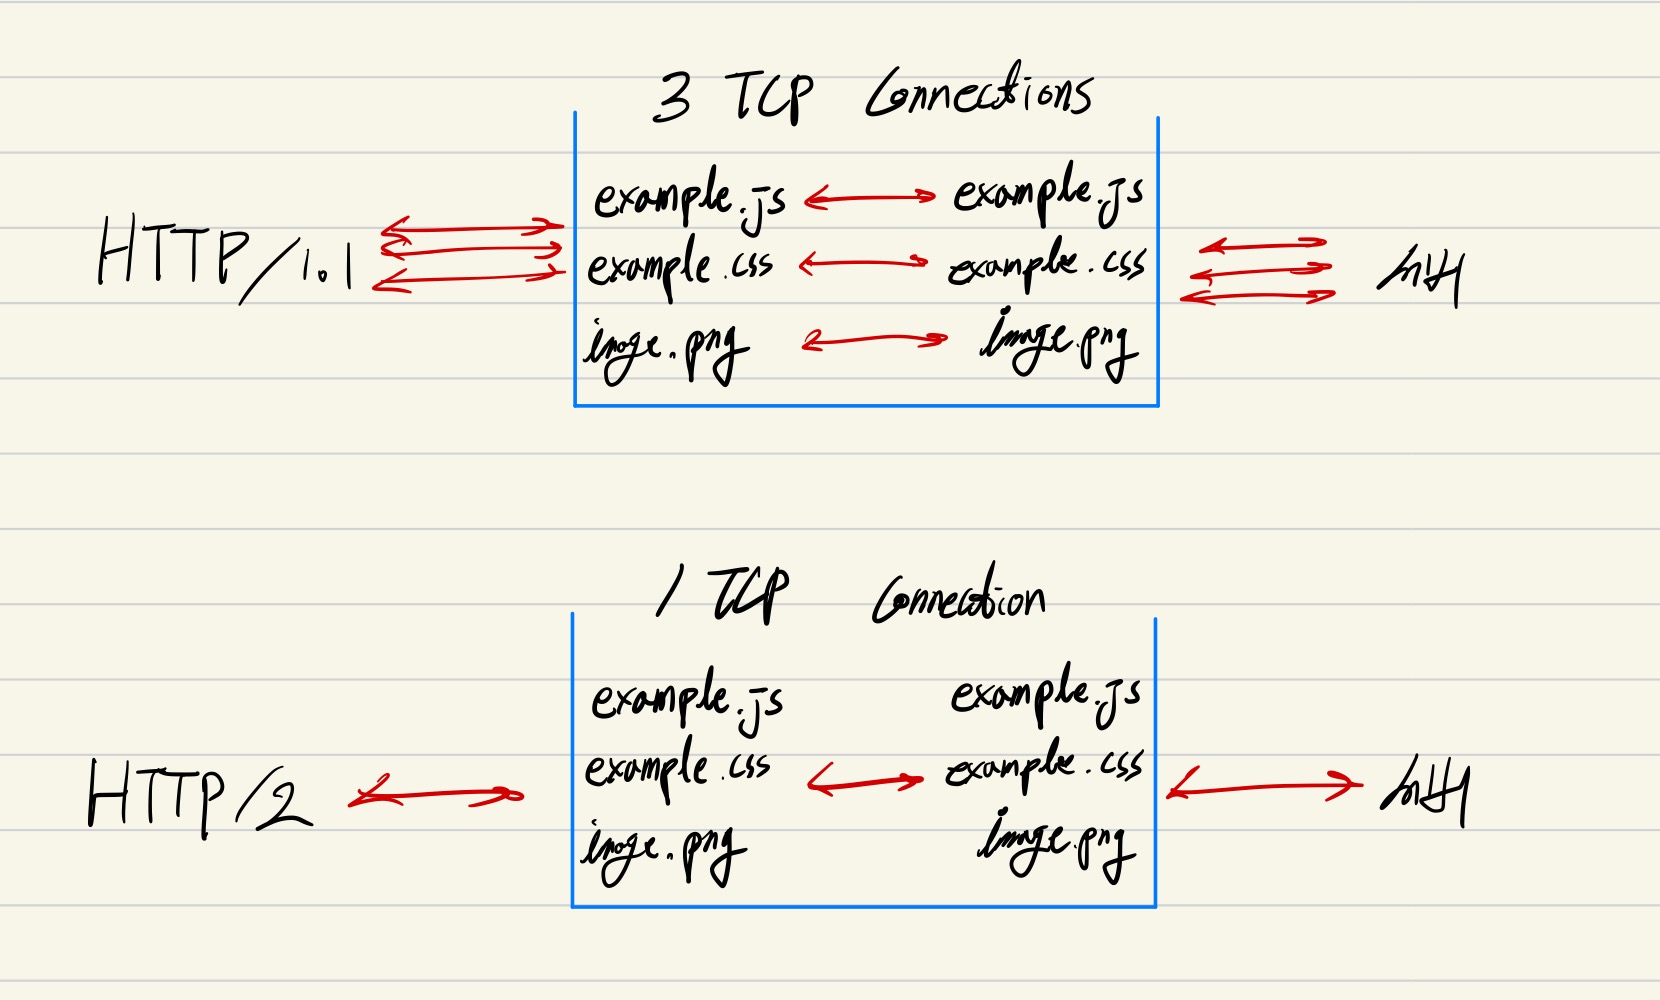 3 TCP Connections
example.js example.js
HTTP/1.1
example.css example.css
image.png image.png
1 TCP Connection
example.js example.js
HTTP/2 example.css example.css
image.png image.png